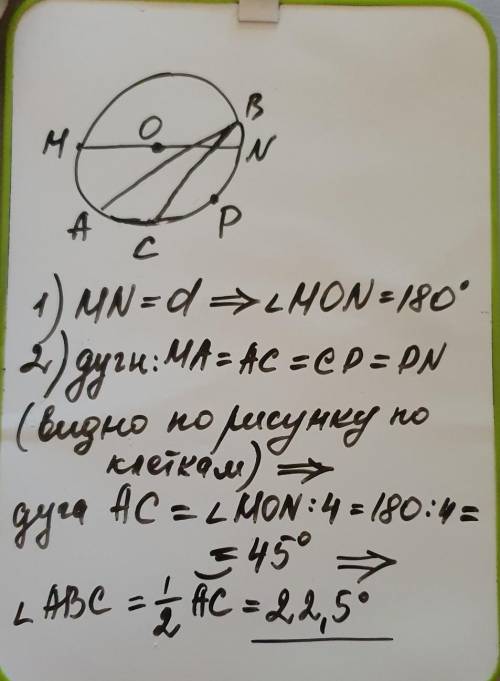 B
O
M
N
A
P
C
1) MN = d ⇒ ∠MON = 180°
2) дуги: MA = AC = CP = PN
(видно по рисунку по
клеткам) ⇒
дуга AC = ∠MON : 4 = 180 : 4 =
= 45° ⇒
∠ABC = 1/2 ◡AC = 22,5°